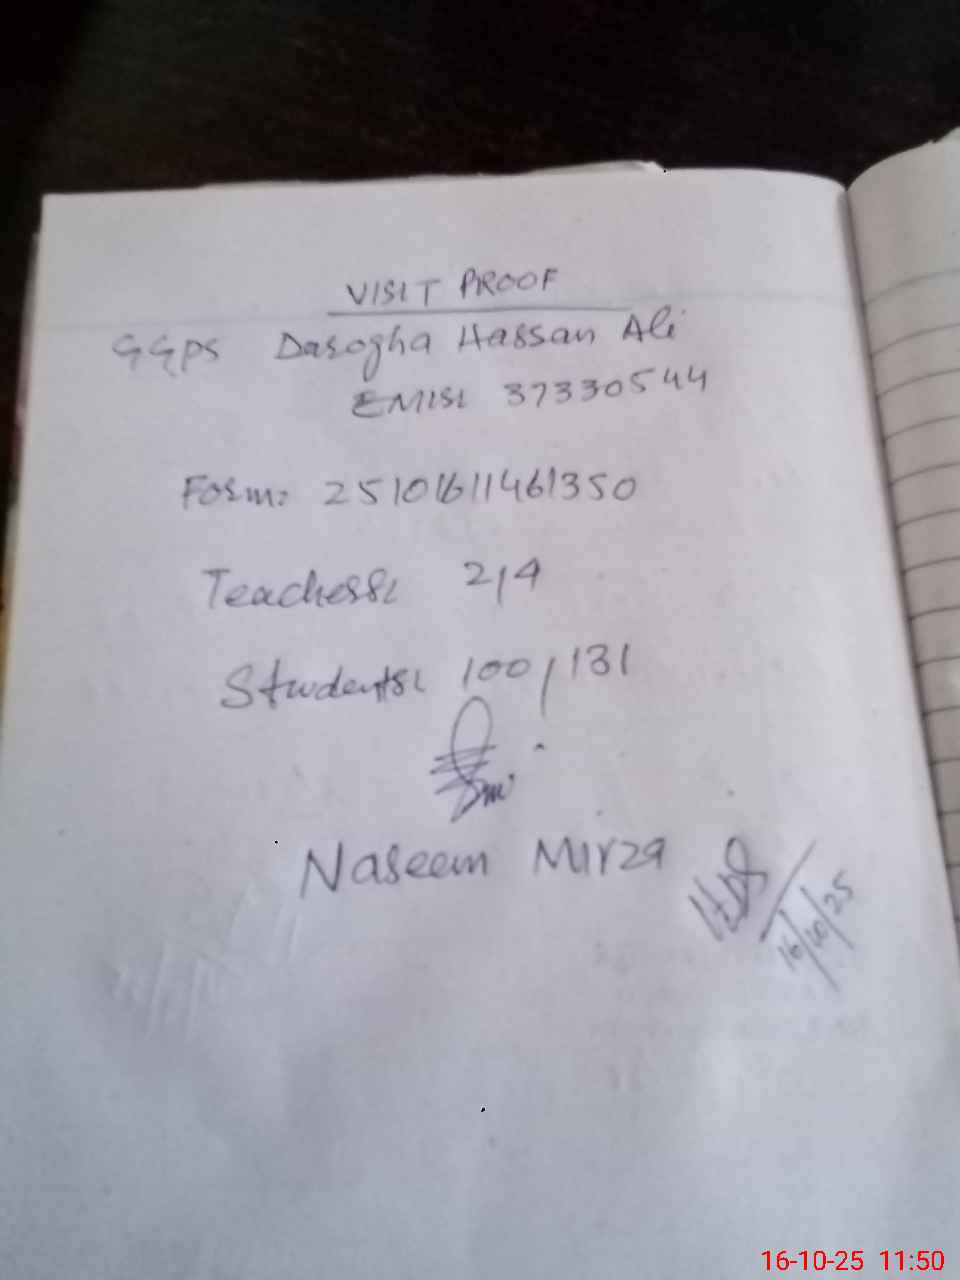 VISIT PROOF
GGPS Darogha Hassan Ali
EMIS: 37330544
Form: 25101611461350
Teachers: 2/4
Students: 100/131
Naseem Mirza
16/10/25
16-10-25 11:50